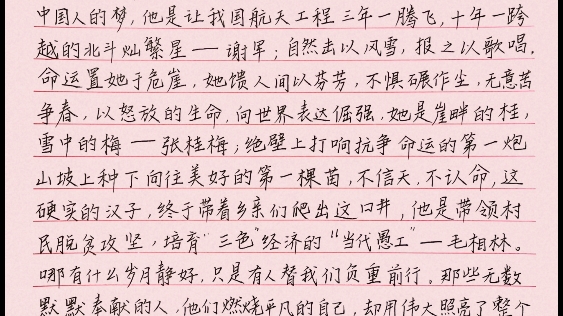 中国人的梦，他是让我国航天工程三年一腾飞，十年一跨
越的北斗灿繁星——谢军；自然击以风雪，报之以歌唱。
命运置她于危崖，她馈人间以芬芳，不惧碾作尘，无意苦
争春，以怒放的生命，向世界表达倔强，她是崖畔的桂，
雪中的梅——张桂梅；绝壁上打响抗争命运的第一炮
山坡上种下向往美好的第一棵苗，不信天，不认命，这
硬实的汉子，终于带着乡亲们爬出这口井，他是带领村
民脱贫攻坚，培育“三色”经济的“当代愚工”—毛相林。
哪有什么岁月静好，只是有人替我们负重前行。那些无数
默默奉献的人，他们燃烧平凡的自己，却用伟大照亮了整个